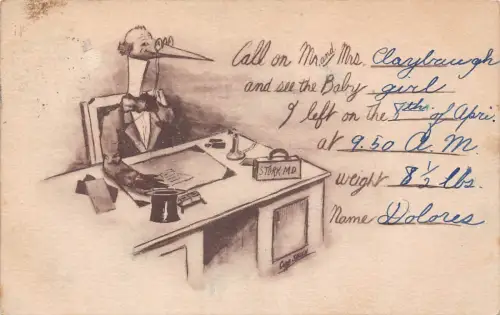 Call on Mr. and Mrs. Claybaugh
and see the Baby girl
I left on the 7th. of Apri.
at 9.50 A.M.
weight 8 1/2 lbs.
Name Dolores
STORK, M.D.